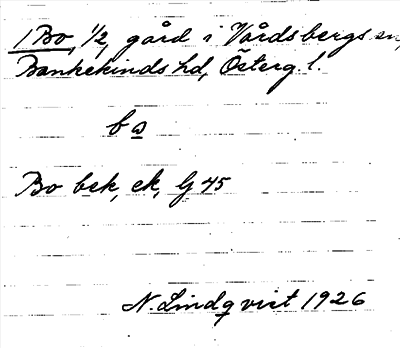 1 Bo, 1/2, gård i Vårdsbergs sn,
Bankekinds hd, Österg. l.
b a
Bo bek, ek, G 45
N. Lindqvist 1926